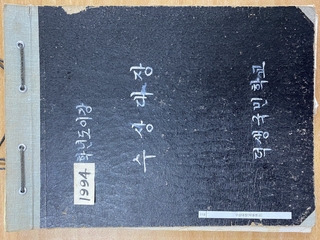 1994 학년도이강
수상대장
덕생국민학교